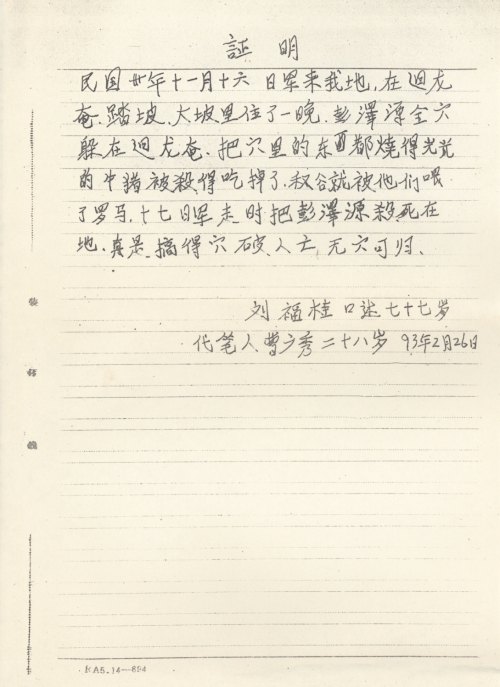 証 明
民国卅年十一月十六 日军来我地,在迴龙
奄、踏坡、大坡里住了一晚、彭澤源全穴
躲在迴龙奄、把穴里的东西都燒得光光
的牛猪被殺得吃掉了,叔谷就被他们喂
了罗马,十七日军走时把彭澤源殺死在
地.真是搞得穴破人亡 无穴可归、
刘福桂口述七十七岁
代笔人曹 秀二十八岁 93年2月26日
装
订
线
KA5.14—894